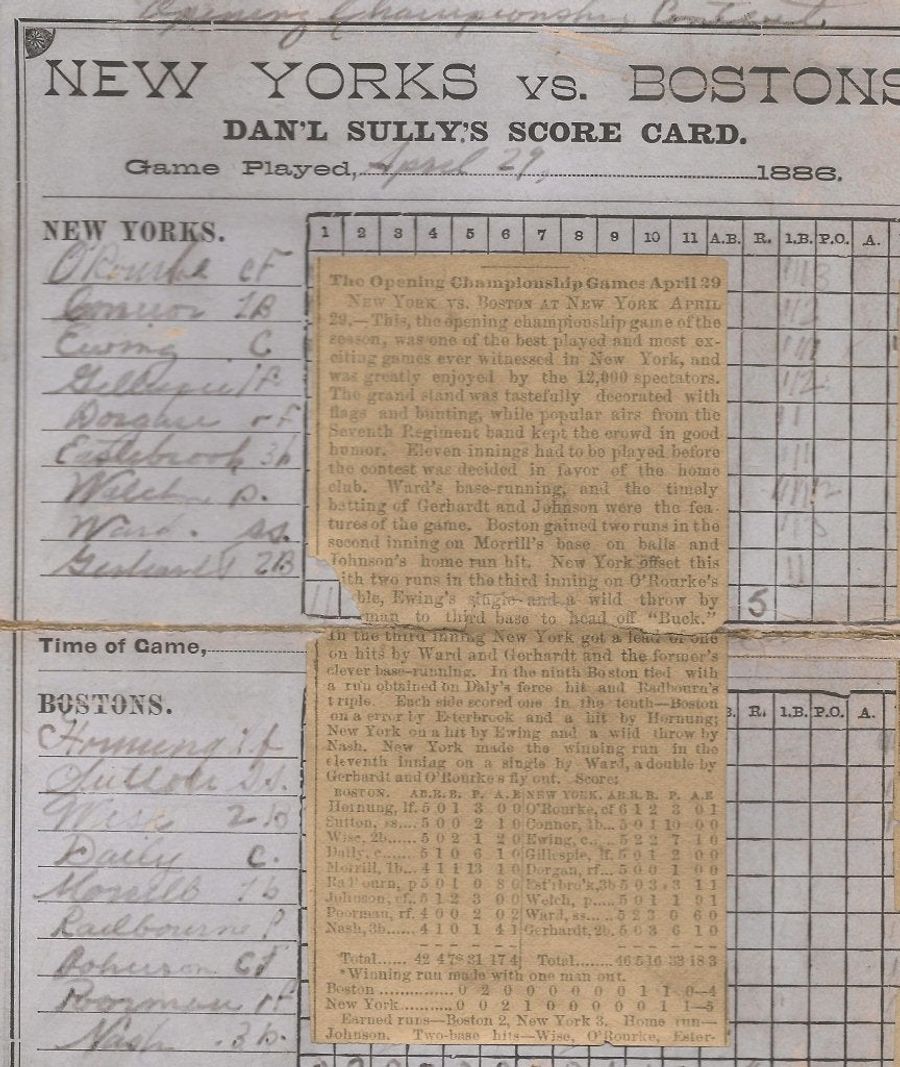 Opening Championship Contest.
NEW YORKS vs. BOSTONS
DAN'L SULLY'S SCORE CARD.
Game Played, April 29, 1886.
NEW YORKS. 1 2 3 4 5 6 7 8 9 10 11 A.B. R. 1.B. P.O. A.
O'Rourke cF
Connor 1B
Ewing C
Gillespie lF
Dorgan rF
Easterbrook 3b
Welch p.
Ward. ss.
Gerhardt 2B
11 5
The Opening Championship Games April 29
NEW YORK VS. BOSTON AT NEW YORK APRIL
29.—This, the opening championship game of the
season, was one of the best played and most ex-
citing games ever witnessed in New York, and
was greatly enjoyed by the 12,000 spectators.
The grand stand was tastefully decorated with
flags and bunting, while popular airs from the
Seventh Regiment band kept the crowd in good
humor. Eleven innings had to be played before
the contest was decided in favor of the home
club. Ward's base-running, and the timely
batting of Gerhardt and Johnson were the fea-
tures of the game. Boston gained two runs in the
second inning on Morrill's base on balls and
Johnson's home run hit. New York offset this
ith two runs in the third inning on O'Rourke's
ble, Ewing's single and a wild throw by
man to third base to head off "Buck."
In the third inning New York got a lead of one
on hits by Ward and Gerhardt and the former's
clever base-running. In the ninth Boston tied with
a run obtained on Daly's force hit and Radbourn's
triple. Each side scored one in the tenth—Boston
on a error by Esterbrook and a hit by Hornung;
New York on a hit by Ewing and a wild throw by
Nash. New York made the winning run in the
eleventh inning on a single by Ward, a double by
Gerhardt and O'Rourke's fly out. Score:
BOSTON. AB. R. B. P. A. E NEW YORK. AB. R. B. P. A. E
Hornung, lf. 5 0 1 3 0 0 O'Rourke, cf 6 1 2 3 0 1
Sutton, ss.... 5 0 0 2 1 0 Connor, 1b... 5 0 1 10 0 0
Wise, 2b...... 5 0 2 1 2 0 Ewing, c.... 5 2 2 7 1 0
Daily, c...... 5 1 0 6 1 0 Gillespie, lf. 5 0 1 2 0 0
Morrill, 1b... 4 1 1 13 1 0 Dorgan, rf... 5 0 0 1 0 0
Rad'ourn, p 5 0 1 0 8 0 Est'rbro'k, 3b 5 0 3 3 1 1
Johnson, cf.. 5 1 2 3 0 0 Welch, p..... 5 0 1 1 9 1
Poorman, rf. 4 0 0 2 0 2 Ward, ss..... 5 2 3 0 6 0
Nash, 3b...... 4 1 0 1 4 1 Gerhardt, 2b. 5 0 3 6 1 0
Total...... 42 4 7 *31 17 4 Total....... 46 5 16 33 18 3
*Winning run made with one man out.
Boston ............... 0 2 0 0 0 0 0 0 1 1 0—4
New York........... 0 0 2 1 0 0 0 0 0 1 1—5
Earned runs—Boston 2, New York 3. Home run—
Johnson. Two-base hits—Wise, O'Rourke, Ester-
Time of Game,
BOSTONS. R. 1.B. P.O. A.
Hornung l.f
Sutton s.s.
Wise 2B
Daily c.
Morrill 1b
Radbourne P
Johnson CF
Poorman rF
Nash 3b.